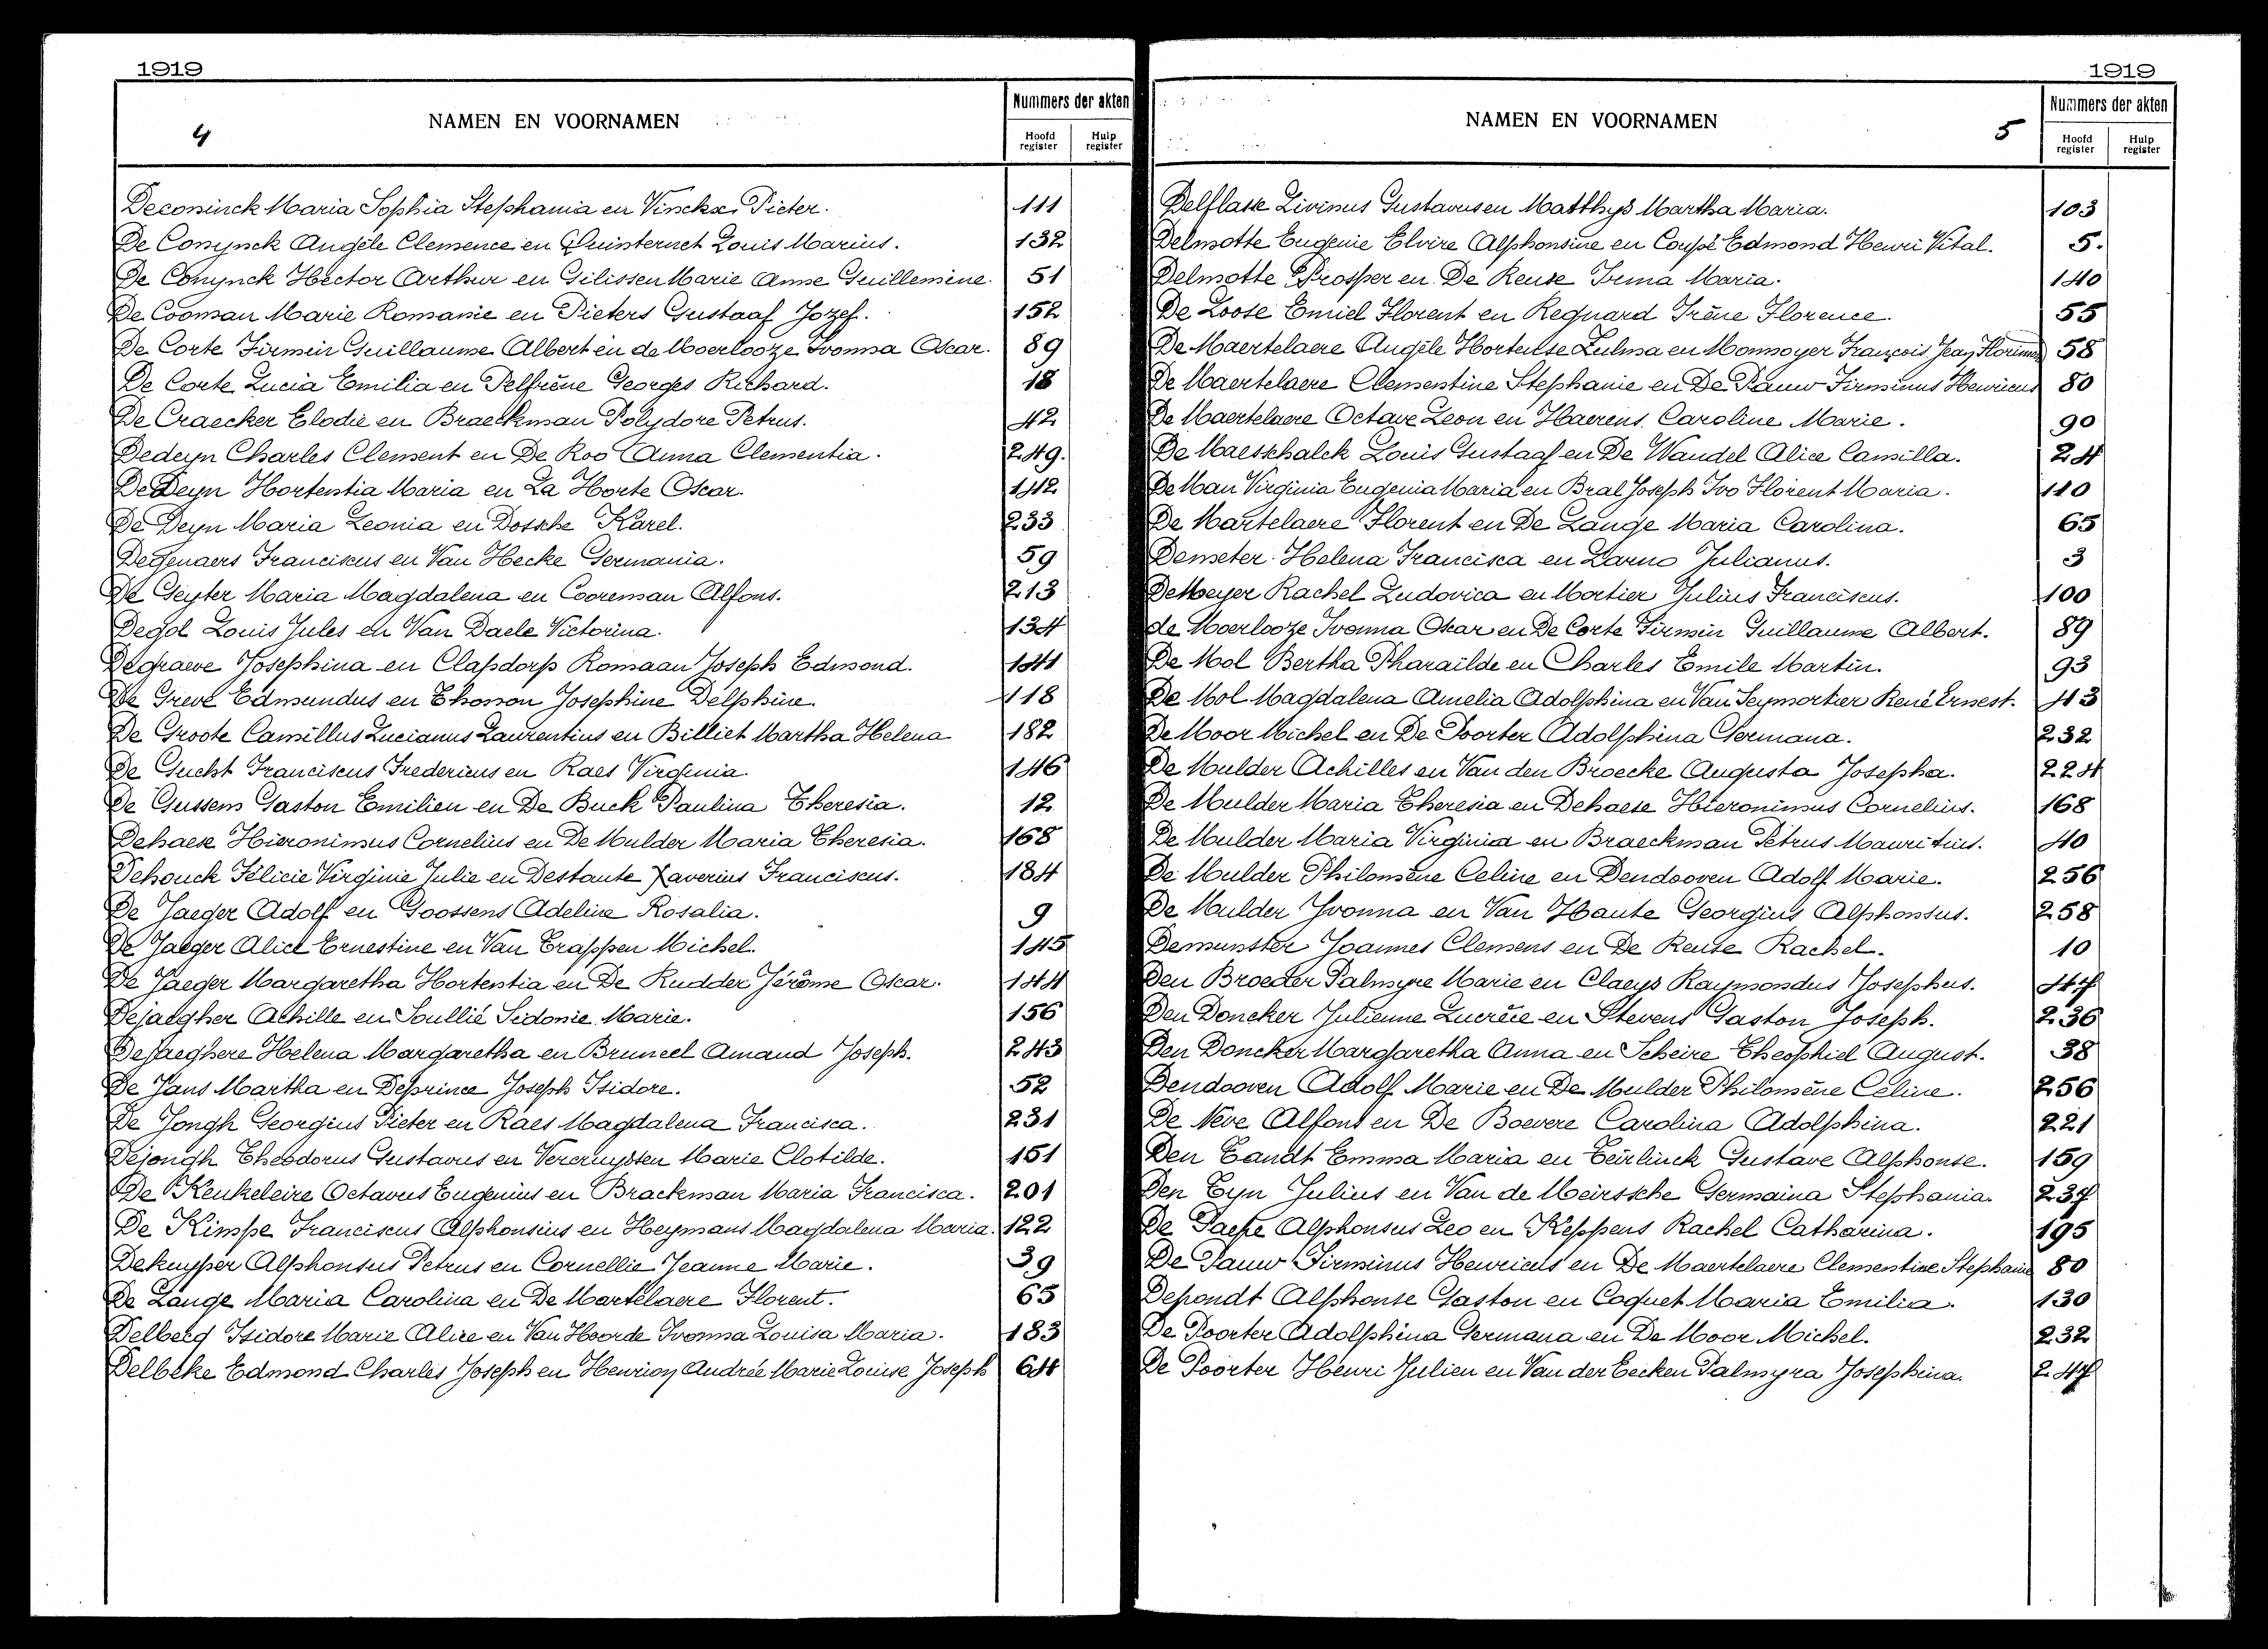 1919
4
NAMEN EN VOORNAMEN
Nummers der akten
Hoofd register
Hulp register
Deconinck Maria Sophia Stephania en Vinckx, Pieter. 111
De Conynck Angèle Clemence en Quinternet Louis Marius. 132
De Conynck Hector Arthur en Gilissen Marie Anne Guillemine. 51
De Cooman Marie Romanie en Pieters Gustaaf Jozef. 152
De Corte Firmin Guillaume Albert en de Moerlooze Ivonna Oscar. 89
De Corte Lucia Emilia en Pelfrène Georges Richard. 18
De Craecker Elodie en Braeckman Polydore Petrus. 42
Dedeyn Charles Clement en De Roo Anna Clementia. 249.
De Deyn Hortentia Maria en La Horte Oscar. 142
De Deyn Maria Leonia en Dossche Karel. 233
Degenaers Franciscus en Van Hecke Germania. 59
De Geyter Maria Magdalena en Cooreman Alfons. 213
Degol Louis Jules en Van Daele Victorina. 134
Degraeve Josephina en Clapdorp Romaan Joseph Edmond. 141
De Greve Edmundus en Thomon Josephine Delphine 118
De Groote Camillus Lucianus Laurentius en Billiet Martha Helena 182
De Gucht Franciscus Fredericus en Raes Virginia. 146
De Gussem Gaston Emilien en De Buck Paulina Theresia. 12
Dehaese Hieronimus Cornelius en De Mulder Maria Theresia. 168
Dehouck Félicie Virginie Julie en Destante Xaverius Franciscus. 184
De Jaeger Adolf en Goossens Adeline Rosalia. 9
De Jaeger Alice Ernestine en Van Trappen Michel. 145
De Jaeger Margaretha Hortentia en De Rudder Jérôme Oscar. 144
Dejaegher Achille en Soullié Sidonie Marie. 156
Dejaeghere Helena Margaretha en Bruneel Amand Joseph. 243
De Jans Martha en Deprince Joseph Isidore. 52
De Jongh Georgius Pieter en Raes Magdalena Francisca. 231
Dejongh Theodorus Gustavus en Vercruysten Marie Clotilde. 151
De Keukeleire Octavus Eugenius en Brackman Maria Francisca. 201
De Kimpe Franciscus Alphonsius en Heymans Magdalena Maria. 122
Dekuyper Alphonsus Petrus en Cornellie Jeanne Marie. 39
De Lange Maria Carolina en De Martelaere Florent. 65
Delberg Isidore Marie Alice en Van Hoorde Ivonna Louisa Maria. 183
Delbeke Edmond Charles Joseph en Henrion Andrée Marie Louise Joseph 64
1919
NAMEN EN VOORNAMEN
5
Nummers der akten
Hoofd register
Hulp register
Delflasse Livinus Gustavus en Matthys Martha Maria. 103
Delmotte Eugenie Elvire Alphonsine en Coupé Edmond Henri Vital. 5.
Delmotte Prosper en De Reuse Irma Maria. 140
De Loose Emiel Florent en Requard Irène Florence. 55
De Maertelaere Angèle Hortense Zulma en Monnoyer François Jean Florimond 58
De Maertelaere Clementine Stephanie en De Pauw Firminus Henricus 80
De Maertelaere Octave Leon en Haerens Caroline Marie. 90
De Maesschalck Louis Gustaaf en De Wandel Alice Camilla. 24
De Man Virginia Eugenia Maria en Bral Joseph Ivo Florent Maria. 110
De Martelaere Florent en De Lange Maria Carolina. 65
Demeter Helena Francisca en Larno Julianus. 3
De Meyer Rachel Ludovica en Mortier Julius Franciscus. 100
de Moerlooze Ivonna Oscar en De Corte Firmin Guillaume Albert. 89
De Mol Bertha Pharaïlde en Charles Emile Martin. 93
De Mol Magdalena Amelia Adolphina en Van Seymortier René Ernest. 43
De Moor Michel en De Poorter Adolphina Germana. 232
De Mulder Achilles en Van den Broecke Augusta Josepha. 224
De Mulder Maria Theresia en Dehaese Hieronimus Cornelius. 168
De Mulder Maria Virginia en Braeckman Petrus Mauritius. 40
De Mulder Philomène Celine en Dendooven Adolf Marie. 256
De Mulder Yvonna en Van Haute Georgius Alphonsus. 258
Demunster Joannes Clemens en De Reuse Rachel. 10
Den Broeder Palmyre Marie en Claeys Raymondus Josephus. 47
Den Doncker Julienne Lucrèce en Stevens Gaston Joseph. 236
Den Doncker Margaretha Anna en Scheire Theophiel August. 38
Dendooven Adolf Marie en De Mulder Philomène Celine. 256
De Neve Alfons en De Boevere Carolina Adolphina. 221
Den Tandt Emma Maria en Teirlinck Gustave Alphonse. 159
Den Tyn Julius en Van de Meirssche Germaina Stephania. 237
De Paepe Alphonsus Leo en Keppens Rachel Catharina. 195
De Pauw Firminus Henricus en De Maertelaere Clementine Stephanie 80
Depondt Alphonse Gaston en Coquet Maria Emilia. 130
De Poorter Adolphina Germana en De Moor Michel. 232
De Poorter Henri Julien en Van der Eecken Palmyra Josephina. 247